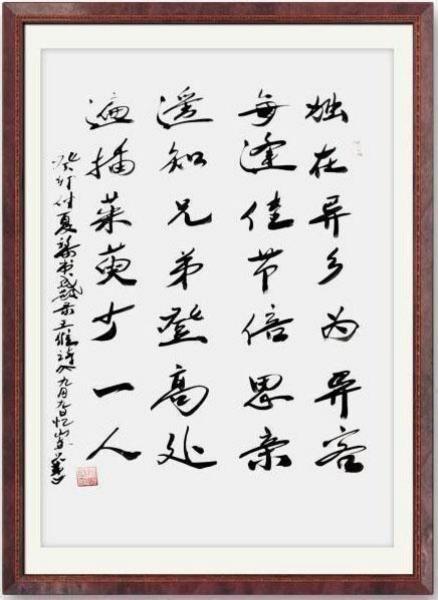 独在异乡为异客
每逢佳节倍思亲
遥知兄弟登高处
遍插茱萸少一人
王维诗九月九日忆山东兄弟